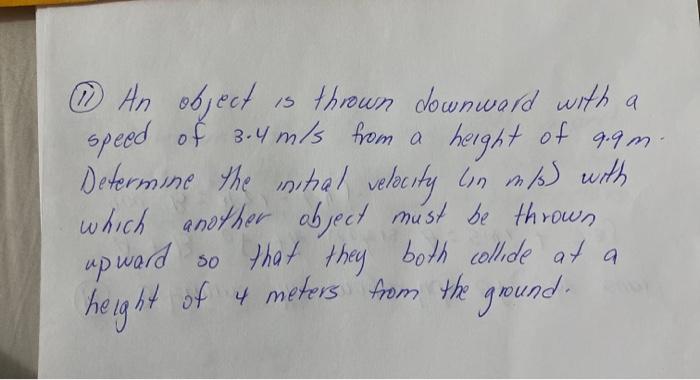 11 An object is thrown downward with a
speed of 3.4 m/s from a height of 9.9 m.
Determine the initial velocity (in m/s) with
which another object must be thrown
upward so that they both collide at a
height of 4 meters from the ground.